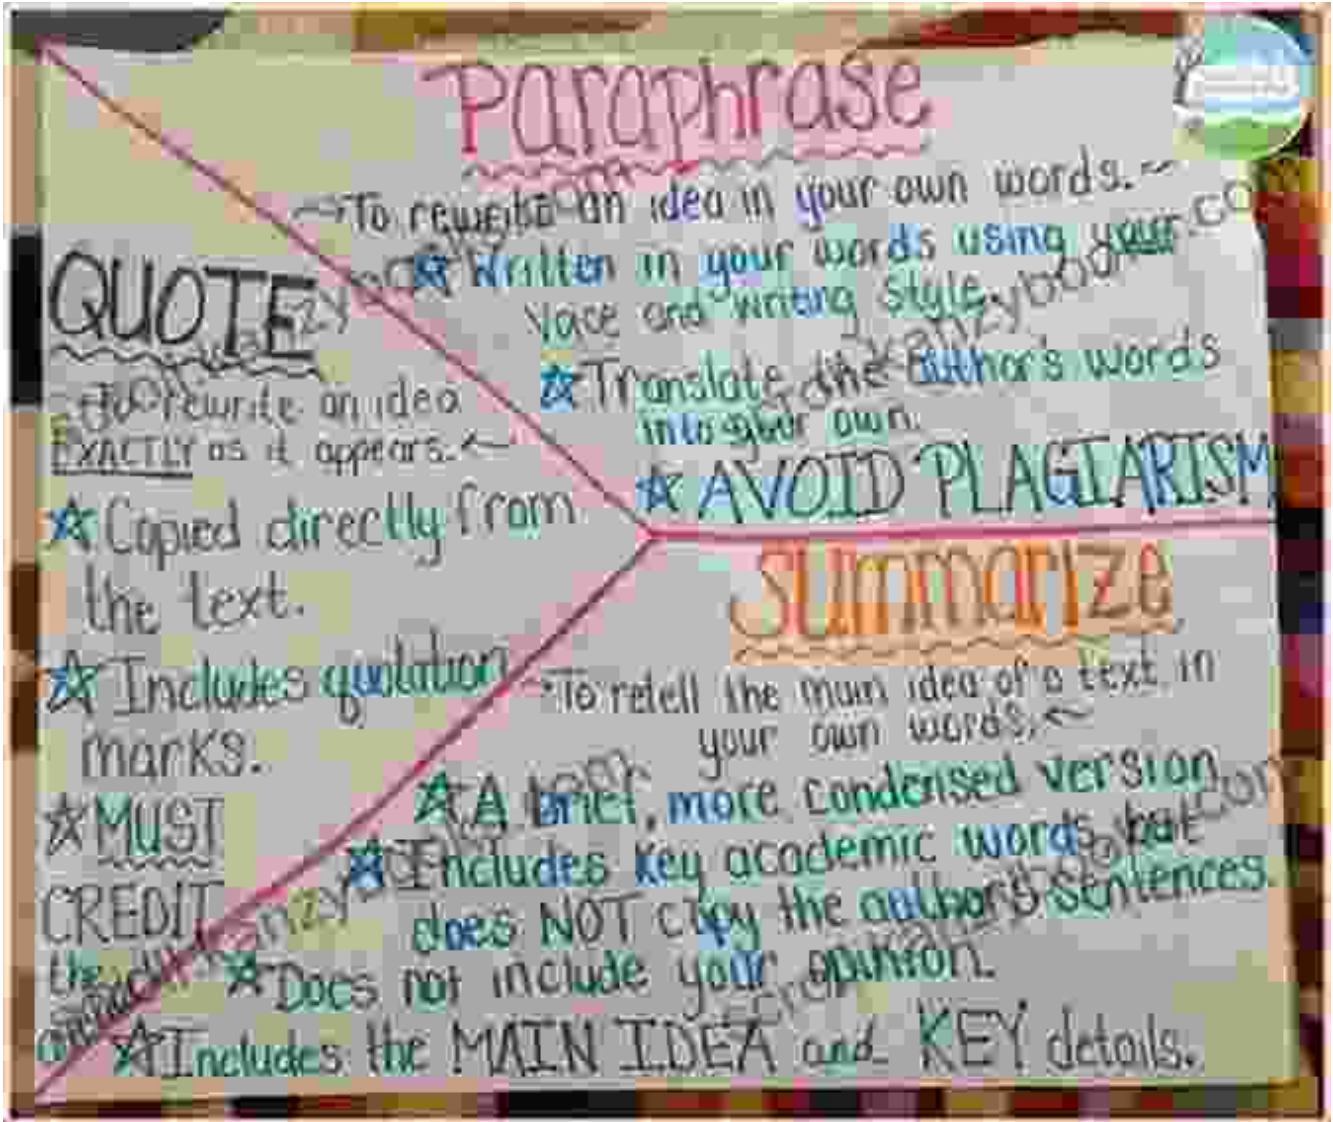 Paraphrase
To rewrite an idea in your own words.
Written in your words using your
voice and writing style.
Translate the author's words
into your own.
AVOID PLAGIARISM
QUOTE
To rewrite an idea
EXACTLY as it appears.
Copied directly from
the text.
Includes quotation
marks.
MUST
CREDIT
the
Summarize
To retell the main idea of a text in
your own words.
A brief, more condensed version
Includes key academic words, but
does NOT copy the author's sentences
Does not include your opinion.
Includes the MAIN IDEA and KEY details.